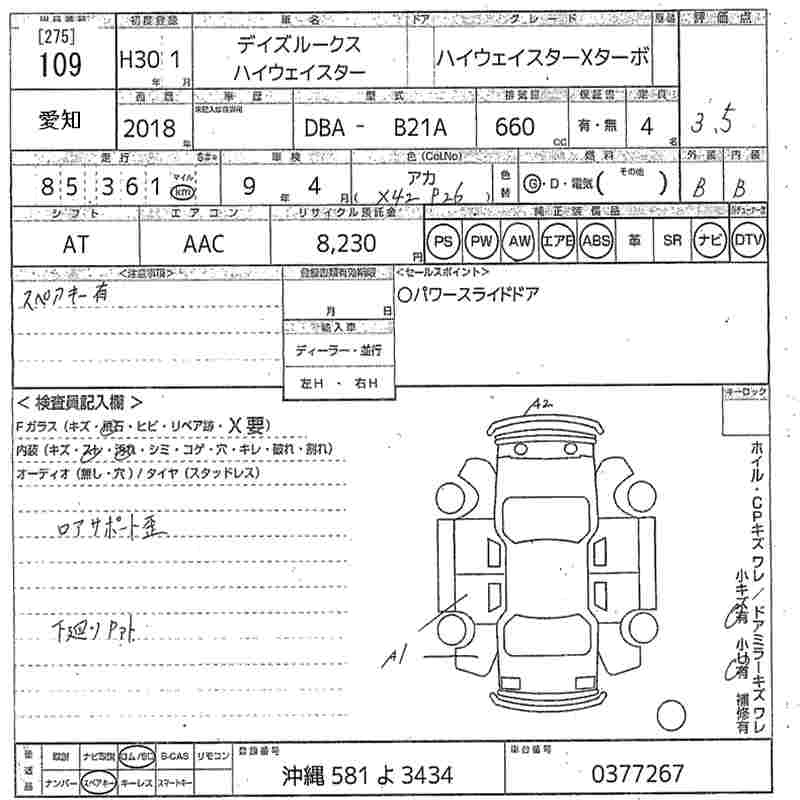 初度登録 車名 ドア グレード 評価点
[275]
109
H30 1
年 月
デイズルークス
ハイウェイスター
ハイウェイスターXターボ
3.5
愛知
車歴 型式 排気量 保証書 定員
2018
年
DBA - B21A
660
CC
有・無
4
名
走行 車検 色(Col.No) 燃料 外装 内装
85361
マイル
km
9 年 4 月
アカ
( X42 P26 )
色替
G・D・電気( その他 )
B
B
シフト エアコン リサイクル預託金 純正装備品
AT
AAC
8,230
円
PS PW AW エアB ABS 革 SR ナビ DTV
<注意事項>
スペアキー有
月 日
輸入車
ディーラー・並行
左H ・ 右H
<セールスポイント>
〇パワースライドドア
キーロック
< 検査員記入欄 >
Fガラス (キズ・飛石・ヒビ・リペア跡・X要)
内装 (キズ・スレ・汚れ・シミ・コゲ・穴・キレ・破れ・割れ)
オーディオ (無し・穴) / タイヤ (スタッドレス)
ロアサポート歪
下廻りPアト
A2
A1
ホイル・CPキズ ワレ / ドアミラーキズ ワレ
小キズ有 小凹有 補修有
取説 ナビ取説 ロム/SD B-CAS リモコン
ナンバー スペアキー キーレス スマートキー
登録番号
沖縄 581 よ 3434
車台番号
0377267